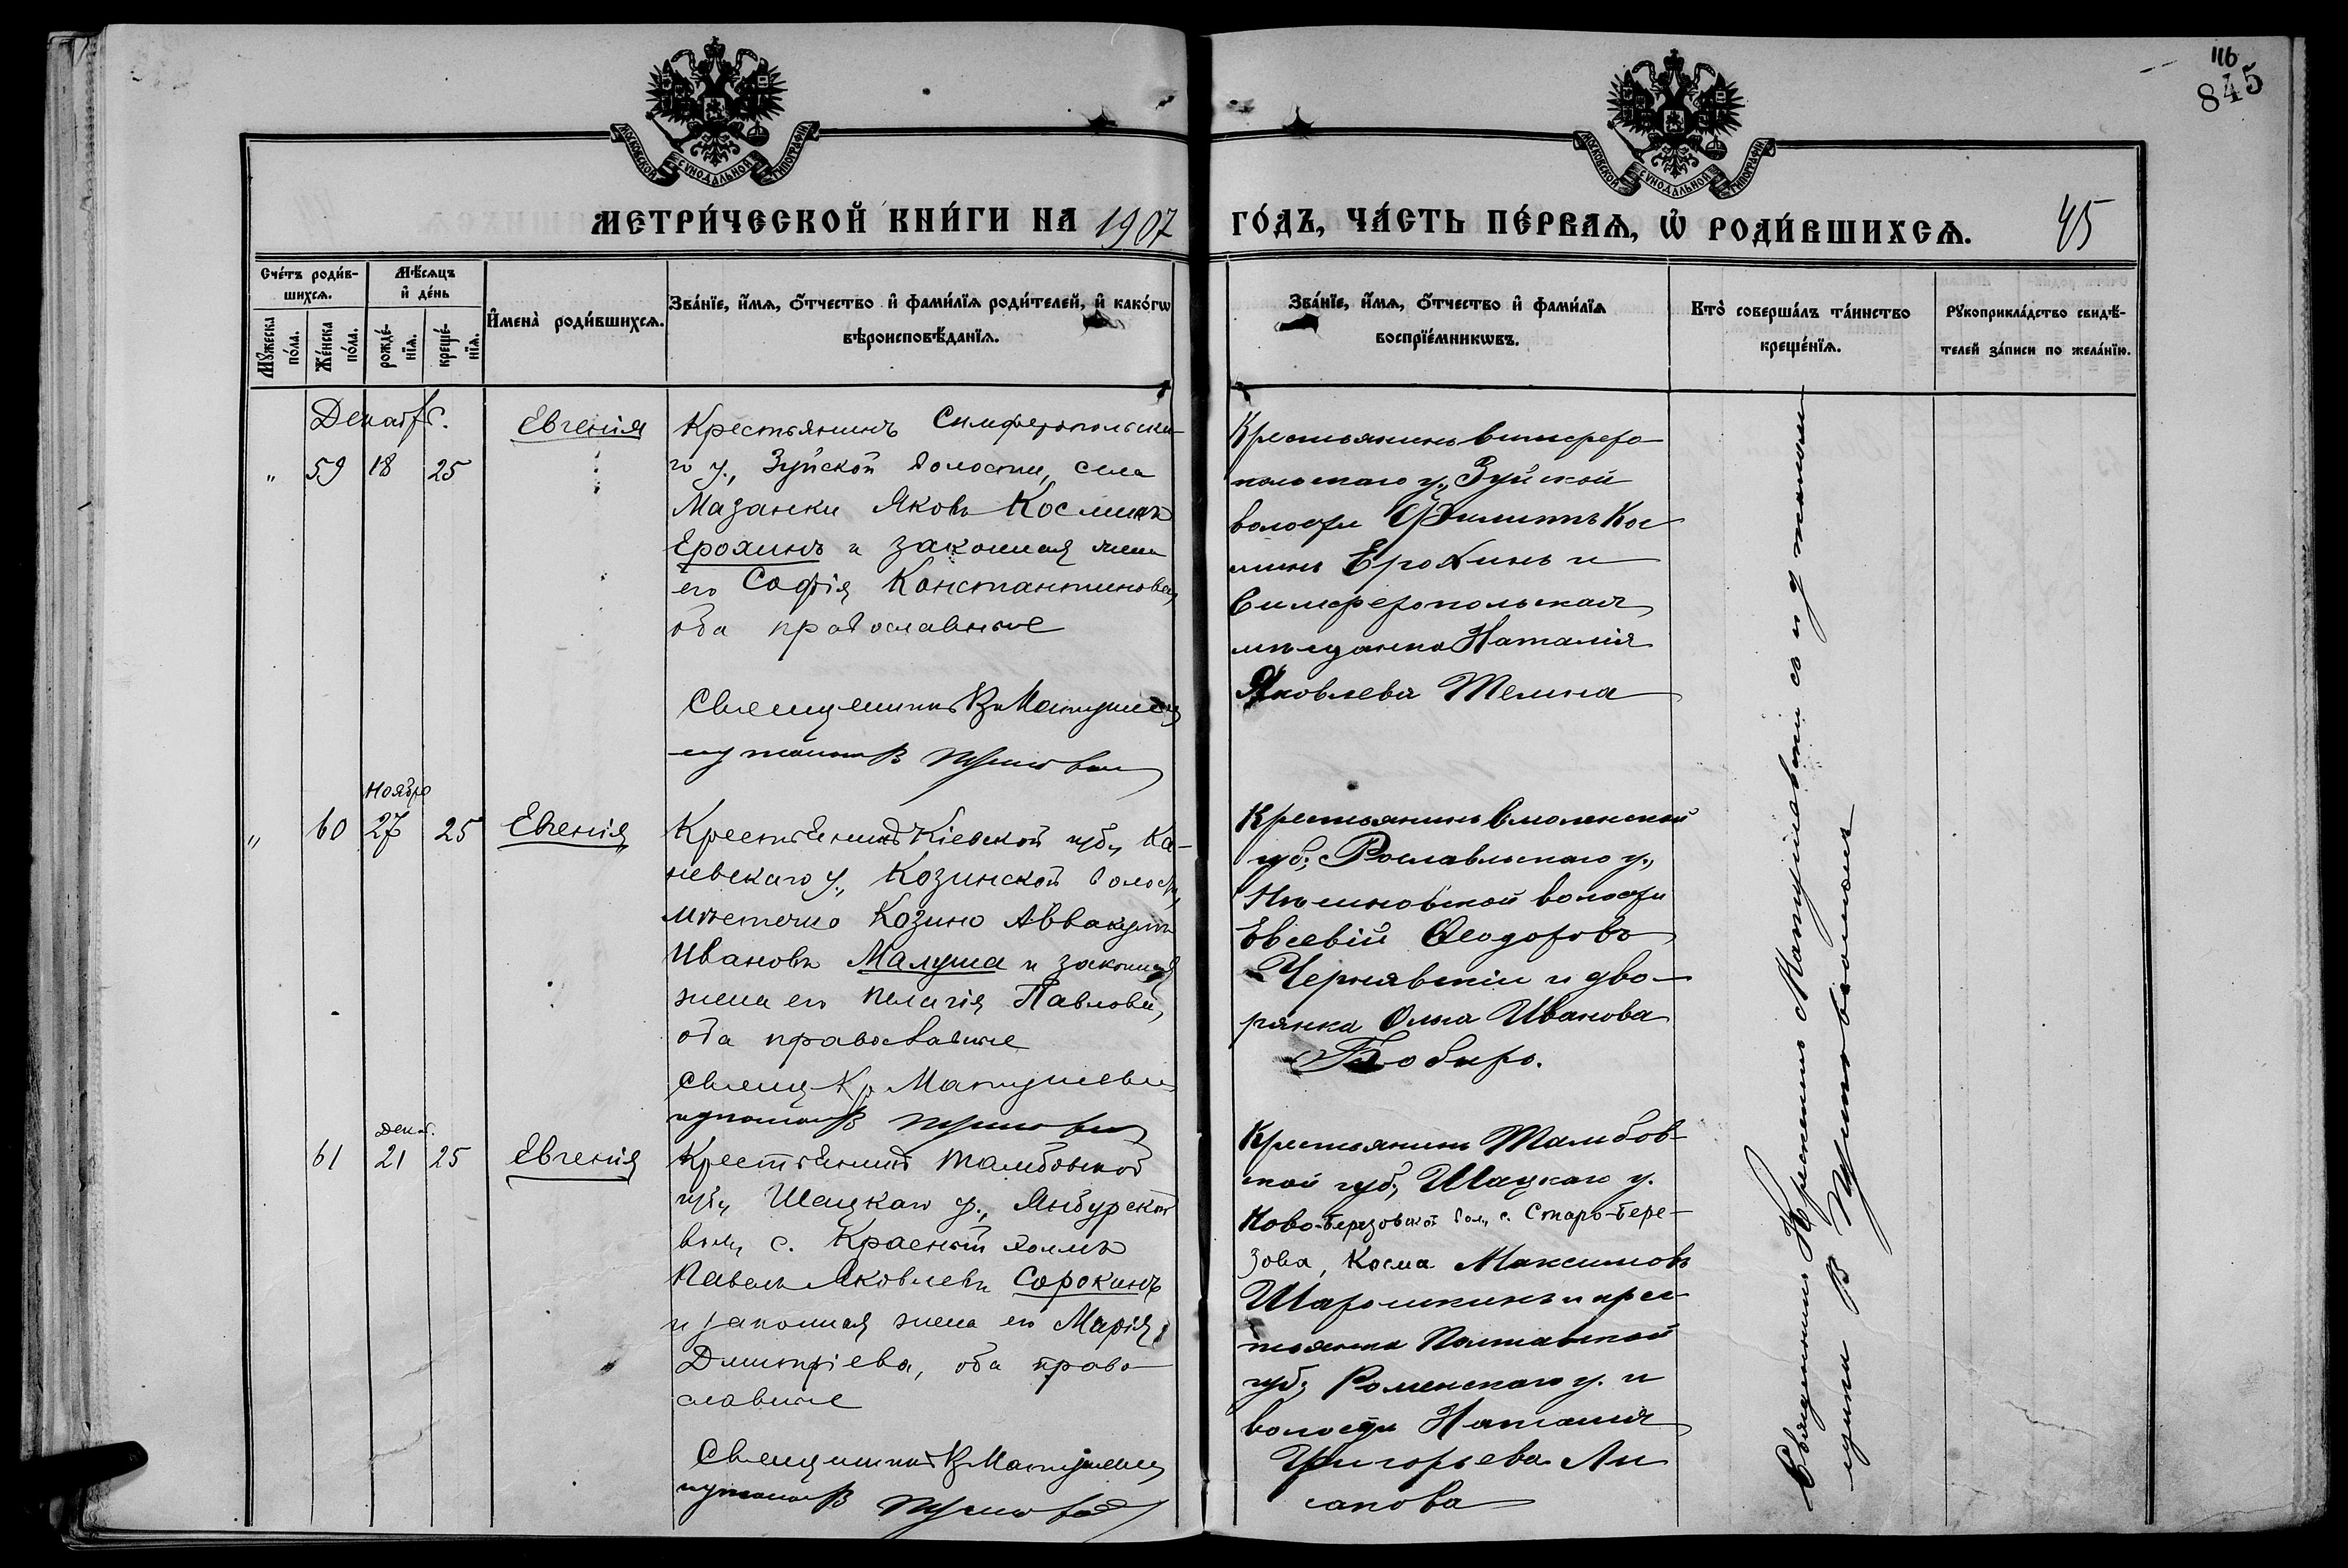 116
845
МОСКОВСКОЙ СУНОДАЛЬНОЙ ТИПОГРАФІИ
МОСКОВСКОЙ СУНОДАЛЬНОЙ ТИПОГРАФІИ
МЕТРИ́ЧЕСКОЙ КНИ́ГИ НА 1907
ГО́ДЪ, ЧА́СТЬ ПЕ́РВАѦ, Ѡ҆ РОДИ́ВШИХСѦ. 45
Сче́тъ роди́в-
шихсѧ.
Мѣ́сѧцъ
и҆ де́нь
Мꙋ́жеска
по́ла.
Же́нска
по́ла.
рожде́-
нїѧ.
креще́-
нїѧ.
И҆мена̀ роди́вшихсѧ.
Зва́нїе, и҆́мѧ, ѻ҆́тчество и҆ фами́лїѧ роди́телей, и҆ како́гѡ
вѣроисповѣ́данїѧ.
Зва́нїе, и҆́мѧ, ѻ҆́тчество и҆ фами́лїѧ
воспрїе́мникѡвъ.
Кто̀ соверша́лъ та́инство
креще́нїѧ.
Рꙋкоприкла́дство свидѣ́-
телей за́писи по жела́нїю.
Декабр.
„ 59 18 25 Евгенія
Крестьянинъ Симферопольска-
го у., Зуйской волости, села
Мазанки Яковъ Косминъ
Ерохинъ и законная жена
его Софія Константинова,
оба православные
Священникъ Кр Матушевъ
псаломщ В
Крестьянинъ Симферо-
польскаго у., Зуйской
волости Филиппъ Кос-
минъ Ерохинъ и
Симферопольская
мѣщанка Наталія
Яковлева Телина
Ноября
„ 60 27 25 Евгенія
Крестьянинъ Кіевской губ., Ка-
невскаго у., Козинской волости,
мѣстечко Козино Аввакумъ
Ивановъ Малуша и законная
жена его Пелагія Павлова,
оба православные
Священ Кр Матушевъ
псаломщ В
Крестьянинъ Смоленской
губ., Рославльскаго у.,
волости
Евсевій Ѳеодоровъ
Чернявскій и дво-
рянка Ольга Иванова
Декаб.
61 21 25 Евгенія
Крестьянинъ Тамбовской
губ., Шацкаго у., Ямбурской
вол., с. Красный холмъ
Павелъ Яковлевъ Сорокинъ
и законная жена его Марія
Дмитріева, оба право-
славные
Священникъ Кр Матушевъ
псаломщ В
Крестьянинъ Тамбов-
ской губ., Шацкаго у.
Ново-Березовской вол., с. Старо-Бере-
зова, Косма Максимовъ
Шарошкинъ и крес-
тьянка Полтавской
губ., Роменскаго у. и
волости Наталія
Григорьева Ли-
сапова
Священникъ